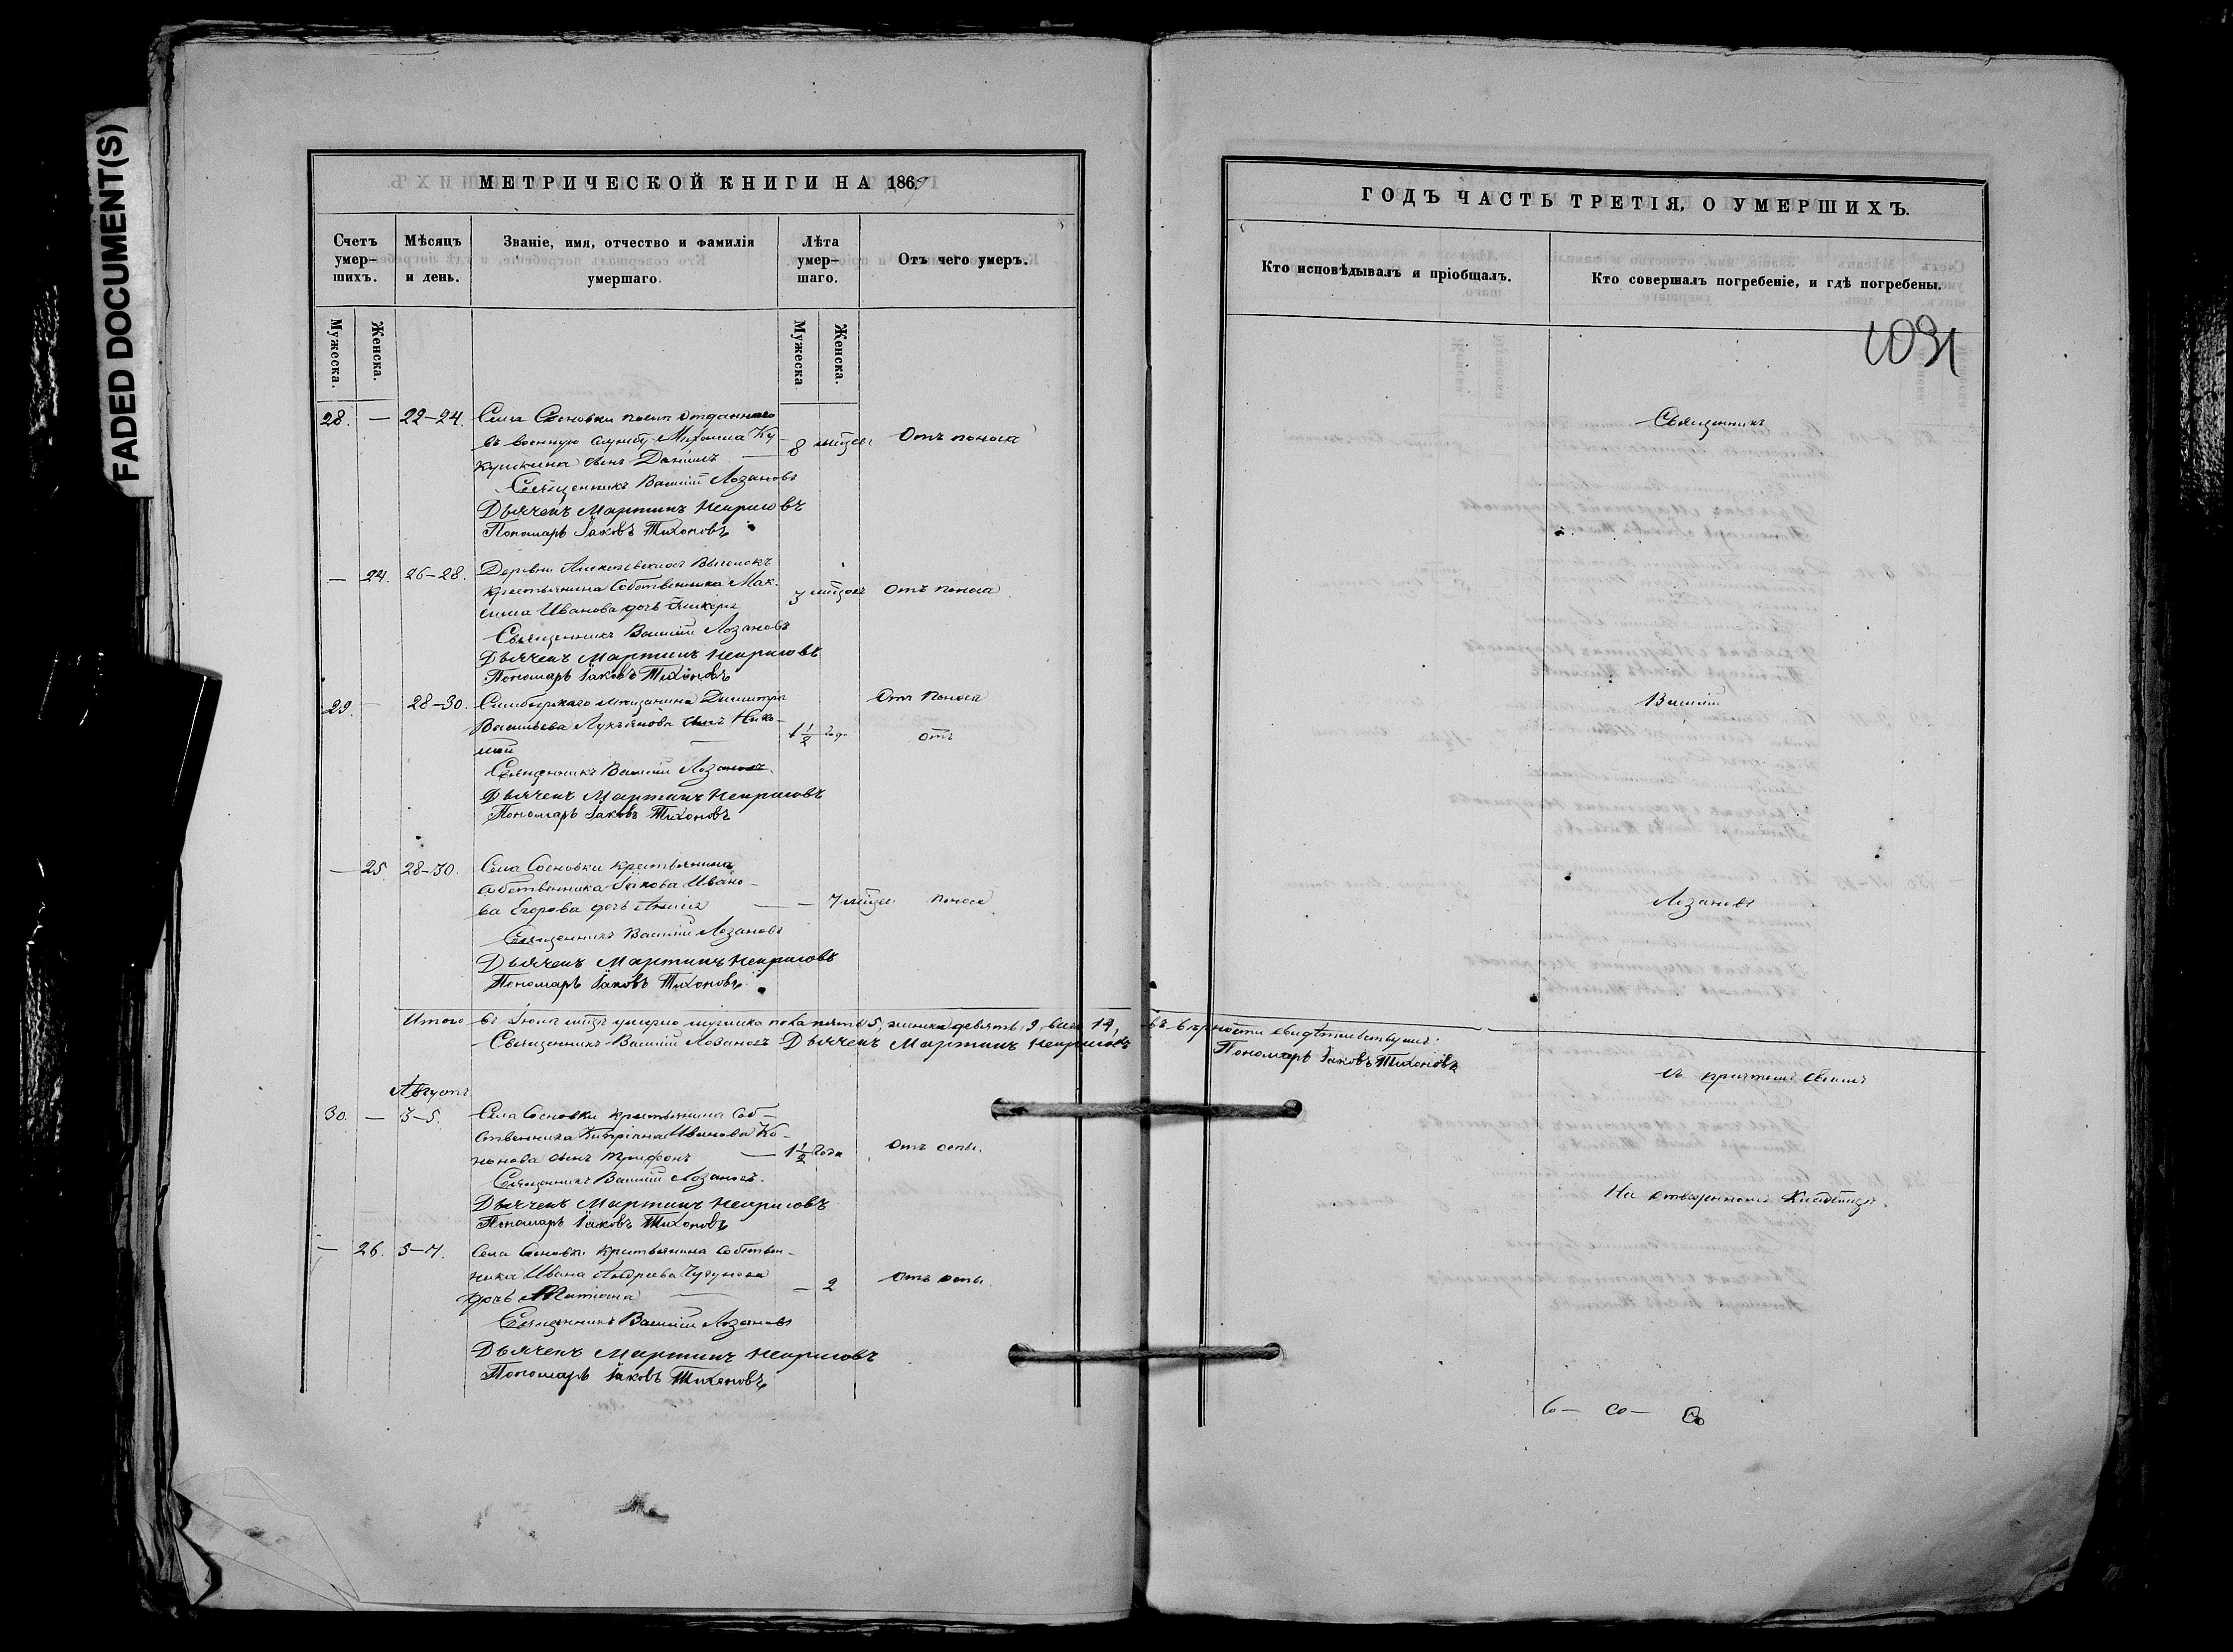 FADED DOCUMENT(S)
МЕТРИЧЕСКОЙ КНИГИ НА 1869
Счетъ умер-шихъ.
Мѣсяцъ и день.
Званіе, имя, отчество и фамилія умершаго.
Лѣта умер-шаго.
Отъ чего умеръ.
Мужеска.
Женска.
Мужеска
Женска.
28. — 22-24. Села Сосновки отданнаго
въ военную службу Михаила Ку
кушкина сынъ Даніилъ — 8 мѣсяц. Отъ поноса
Священникъ Василій Лозановъ
Дьячекъ Мартинъ Некрасовъ
Пономарь Іаковъ Тихоновъ
— 24. 26-28. Деревни Выселокъ
крестьянина Собственника Мак-
сима Иванова дочь Гликерія 3 мѣсяц. Отъ поноса
Священникъ Василій Лозановъ
Дьячекъ Мартинъ Некрасовъ
Пономарь Іаковъ Тихоновъ
29. — 28-30. Симбирскаго мѣщанина Димитрія
Васильева Лукьянова сынъ Нико-
лай — 1 1/2 года Отъ поноса
отъ
Священникъ Василій Лозановъ.
Дьячекъ Мартинъ Некрасовъ
Пономарь Іаковъ Тихоновъ
— 25. 28-30. Села Сосновки крестьянина
собственника Іакова Ивано-
ва Егорова дочь — — 7 мѣсяц. поноса
Священникъ Василій Лозановъ
Дьячекъ Мартинъ Некрасовъ
Пономарь Іаковъ Тихоновъ
Итого въ Іюлѣ мѣсяцѣ умерло мужеска пола пять, 5, женска девять, 9, всего 14,
Священникъ Василій Лозановъ Дьячекъ Мартинъ Некрасовъ
Августъ
30. — 3-5. Села Сосновки крестьянина Соб-
ственника Кипріана Иванова Ко-
нонова сынъ Трифонъ — 1 1/2 года Отъ оспы.
Священникъ Василій Лозановъ.
Дьячекъ Мартинъ Некрасовъ
Пономарь Іаковъ Тихоновъ
— 26. 5-7. Села Сосновки крестьянина собствен-
ника Ивана Андреева Чугунова
дочь — — 2 Отъ оспы.
Священникъ Василій Лозановъ
Дьячекъ Мартинъ Некрасовъ
Пономарь Іаковъ Тихоновъ
ГОДЪ ЧАСТЬ ТРЕТІЯ, О УМЕРШИХЪ.
Кто исповѣдывалъ и пріобщалъ.
Кто совершалъ погребеніе, и гдѣ погребены.
1031
Священникъ
Василій
Лозановъ
въ вѣрности свидѣтельствуемъ:
Пономарь Іаковъ Тихоновъ
съ причтомъ своимъ
На отведенномъ Кладбищѣ.